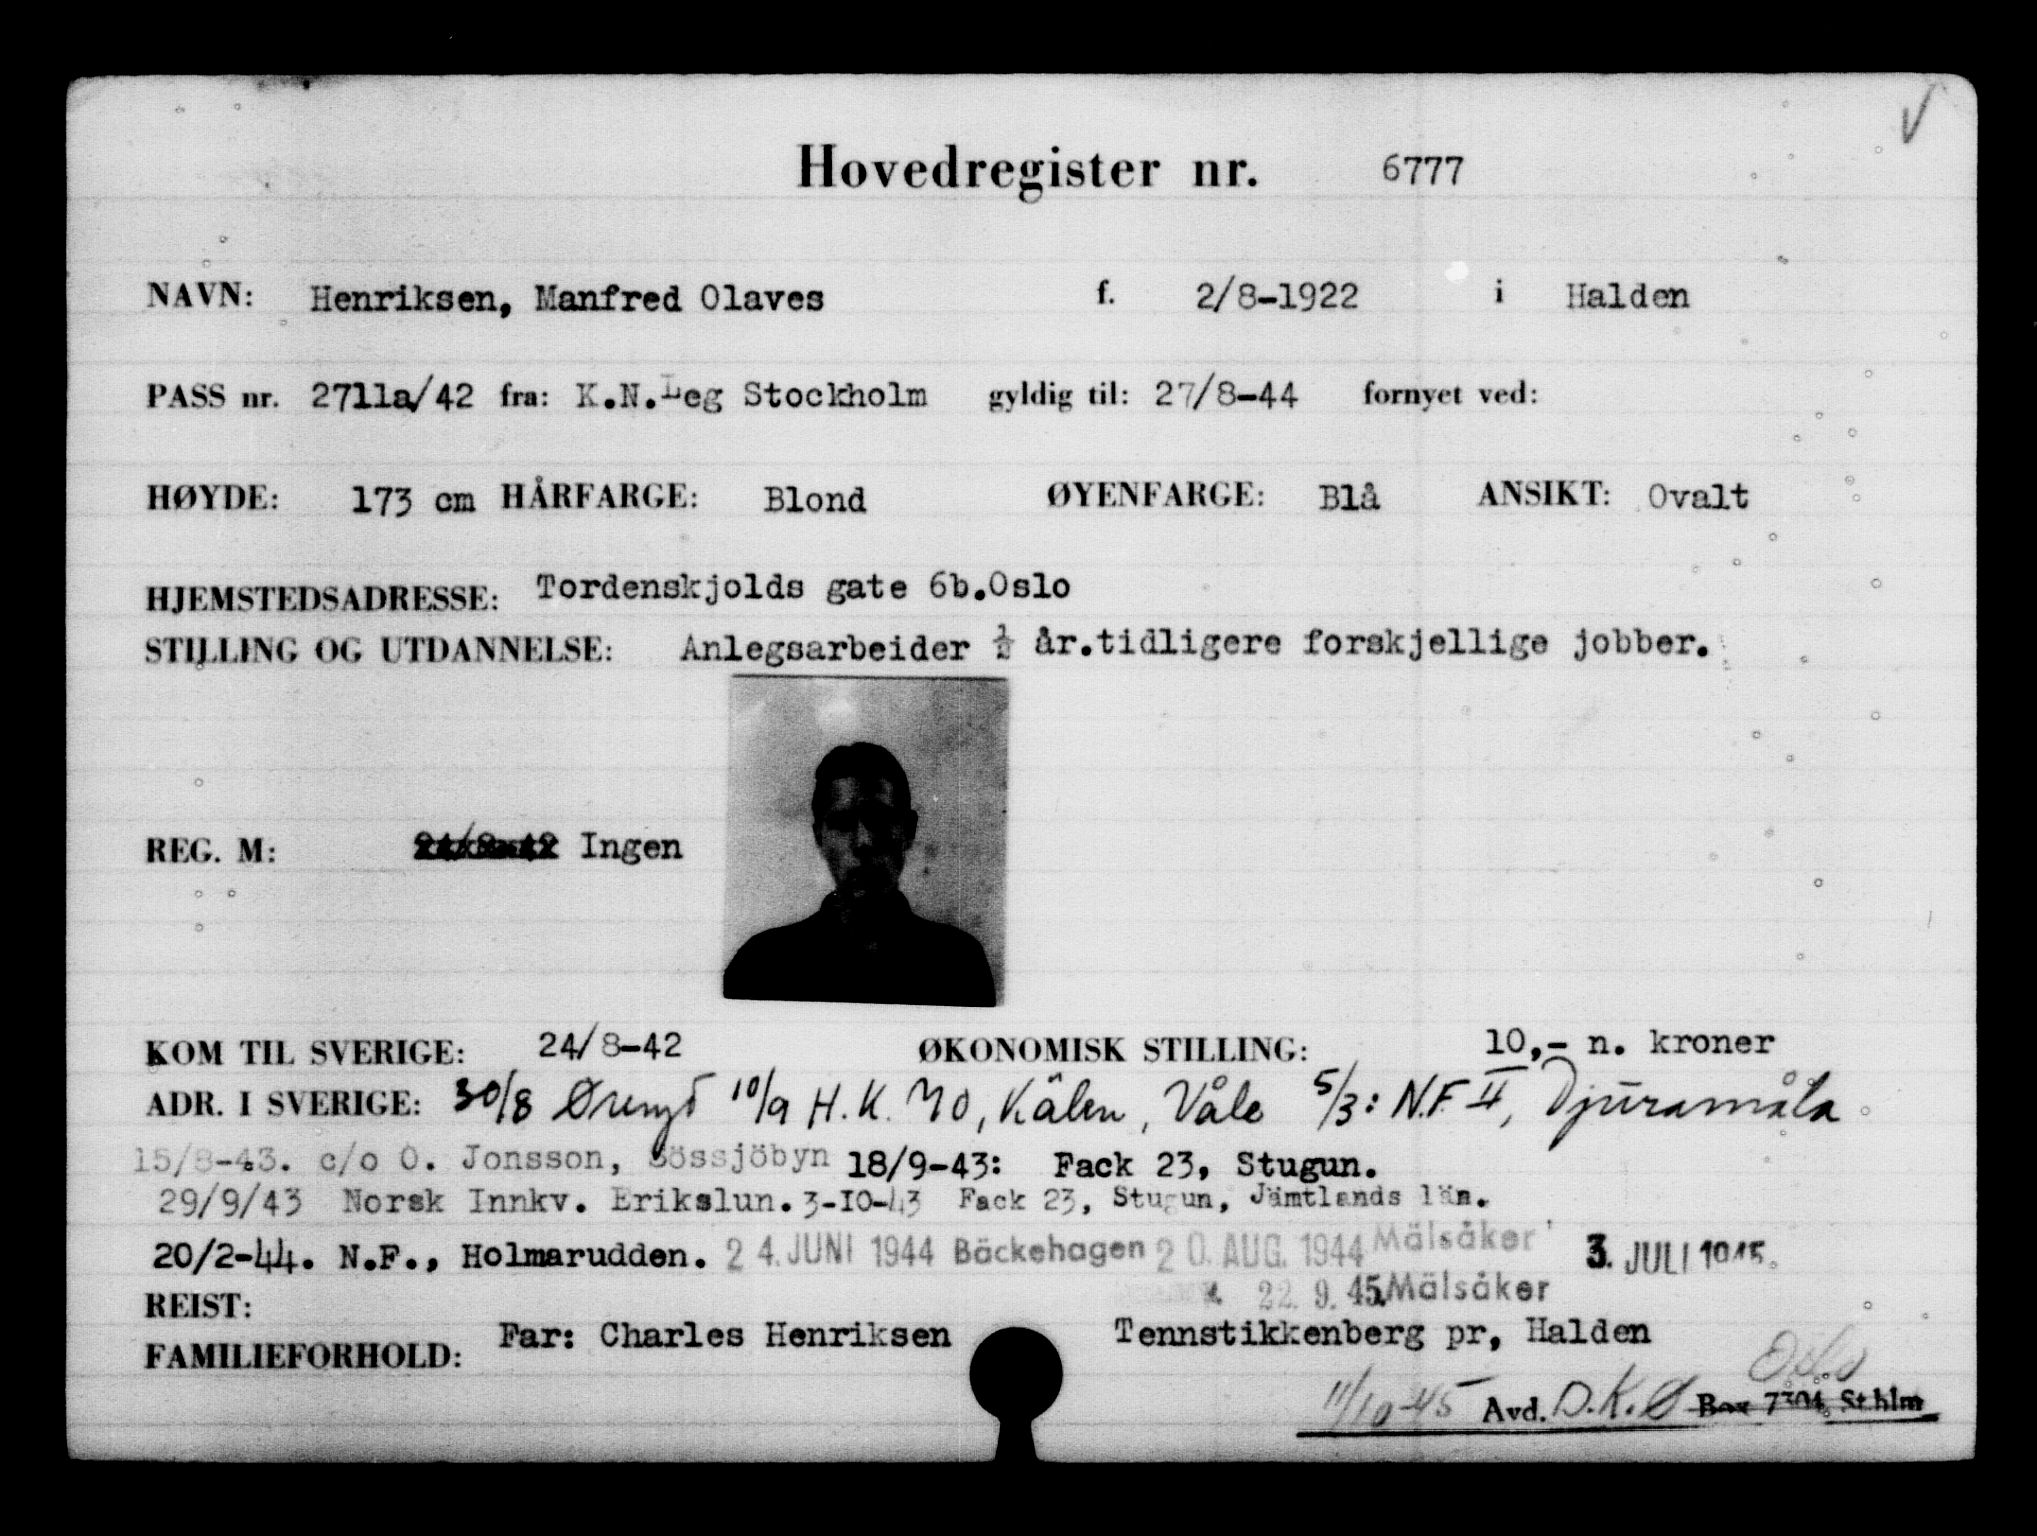 Hovedregister nr. 6777
NAVN: Henriksen, Manfred Olaves f. 2/8-1922 i Halden
PASS nr. 2711a/42 fra: K.N.Leg Stockholm gyldig til: 27/8-44 fornyet ved:
HØYDE: 173 cm HÅRFARGE: Blond ØYENFARGE: Blå ANSIKT: Ovalt
HJEMSTEDSADRESSE: Tordenskjolds gate 6b.Oslo
STILLING OG UTDANNELSE: Anlegsarbeider ½ år.tidligere forskjellige jobber.
REG. M: 24/8-42 Ingen
KOM TIL SVERIGE: 24/8-42 ØKONOMISK STILLING: 10,- n. kroner
ADR. I SVERIGE: 30/8 10/9 H.K. 70, Kälen, Våle 5/3: N.F. II, Djuramåla
15/8-43. c/o O. Jonsson, Bössjöbyn 18/9-43: Fack 23, Stugun.
29/9/43 Norsk Innkv. Erikslun. 3-10-43 Fack 23, Stugun, Jämtlands län.
20/2-44. N.F., Holmarudden. 24. JUNI 1944 Bäckehagen 20. AUG. 1944 Mälsåker 3. JULI 1945.
22. 9. 45. Mälsåker
REIST:
FAMILIEFORHOLD: Far: Charles Henriksen Tennstikkenberg pr, Halden
Oslo
11/10-45 Avd. D.K.Ø Box 7304, Sthlm